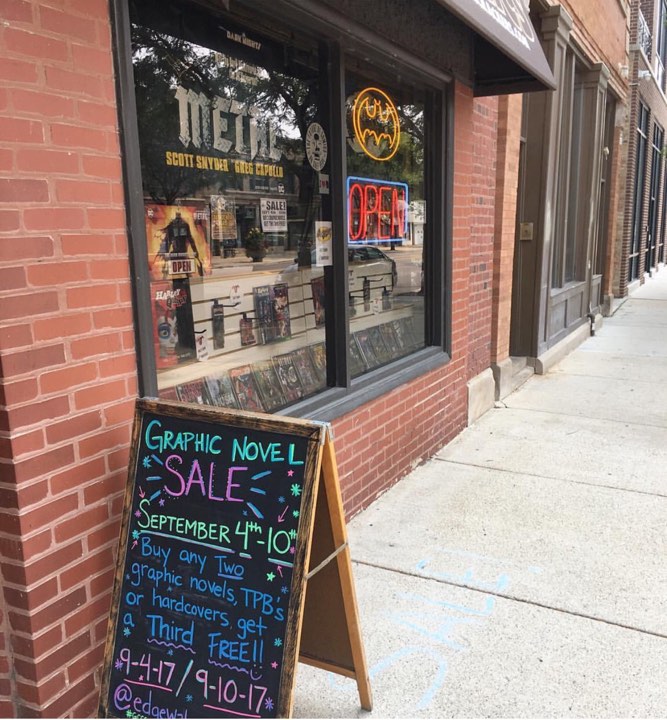 DARK NIGHTS
METAL
SCOTT SNYDER * GREG CAPULLO
DC
SALE!
METAL
OPEN
OPEN
HARLEY
GRAPHIC NOVEL
SALE
SEPTEMBER 4th-10th
Buy any Two
graphic novels, TPB's
or hardcovers, get
a Third FREE!!
9-4-17/9-10-17
SALE!